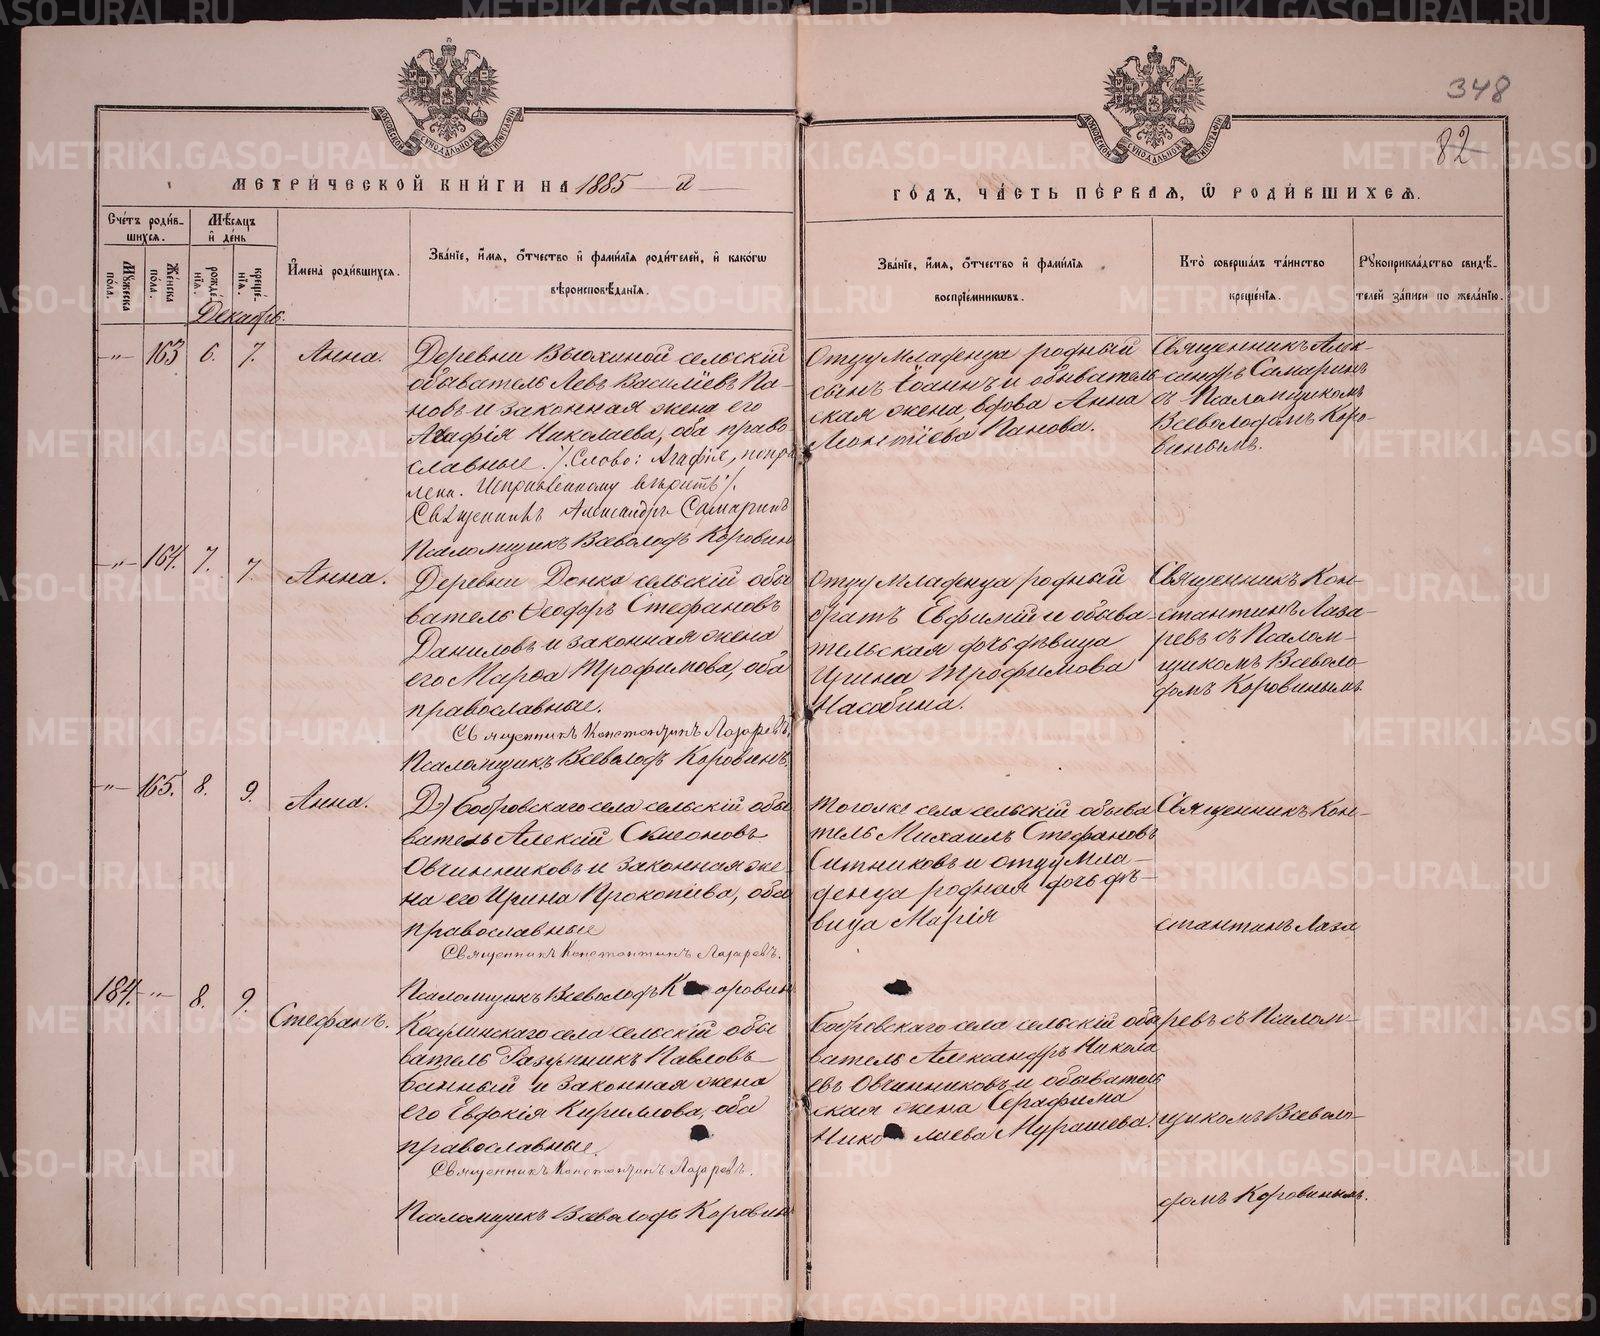 348
82
МЕТРИЧЕСКОЙ КНИГИ НА 1885 й
ГОДЪ, ЧАСТЬ ПЕРВАЯ, Ѡ РОДИВШИХСЯ.
Счетъ родив-
шихся.
Мѣсяцъ
и день
Мужеска пола.
Женска пола.
рожде-
нія.
креще-
нія.
Имена родившихся.
Званіе, имя, ѻтчество и фамилія родителей, и какогѡ
вѣроисповѣданія.
Званіе, имя, ѻтчество и фамилія
воспріемникѡвъ.
Кто совершалъ таинство
крещенія.
Рукоприкладство свидѣ-
телей записи по желанію.
Декабрь.
-"- 163 6. 7. Анна.
Деревни Вьюхиной сельскій
обыватель Левъ Василіевъ Па-
новъ и законная жена его
Агафія Николаева, оба право
славные. /.Слово: Агафія, попра
лена. Исправленному верить/.
Священникъ Александръ Самаринъ
Псаломщикъ Всеволодъ Коровин
Отцу младенца родный
сынъ Іоаннъ и обыватель
ская жена, вдова Анна
Леонтіева Панова.
Священникъ Алек-
сандръ Самаринъ
съ Псаломщикомъ
Всеволодомъ Коро-
винымъ.
-"- 164. 7. 7. Анна.
Деревни Донка сельскій обы
ватель Ѳеодоръ Стефановъ
Даниловъ и законная жена
его Марѳа Трофимова, оба
православные.
Священникъ Константинъ Лазаревъ.
Псаломщикъ Всеволодъ Коровинъ.
Отцу младенца родный
братъ Евфимій и обыва-
тельская дочь дѣвица
Ирина Трофимова
Насобина.
Священникъ Кон-
стантинъ Лаза-
ревъ съ Псалом-
щикомъ Всеволо-
домъ Коровинымъ.
-"- 165. 8. 9. Анна.
Д) Бобровскаго села сельскій обы
ватель Алексій Симеоновъ
Овчинниковъ и законная же-
на его Ирина Прокопіева, оба
православные
Священникъ Константинъ Лазаревъ.
Псаломщикъ Всеволодъ К оровин
Тогоже села сельскій обыва
тель Михаилъ Стефановъ
Ситниковъ и отцу мла-
денца родная дочь дѣ-
вица Марія
Священникъ Кон-
стантинъ Лаза
184. -"- 8. 9. Стефанъ.
Косулинскаго села сельскій обы
ватель Разумникъ Павловъ
Банный и законная жена
его Евдокія Кириллова, оба
православные.
Священникъ Константинъ Лазаревъ.
Псаломщикъ Всеволодъ Коровин
Бобровскаго села сельскій обы
ватель Александръ Никола
евъ Овчинниковъ и обыватель
ская жена Серафима
Нико лаева Мурашева.
ревъ съ Псалом-
щикомъ Всеволо-
домъ Коровинымъ.
METRIKI.GASO-URAL.RU